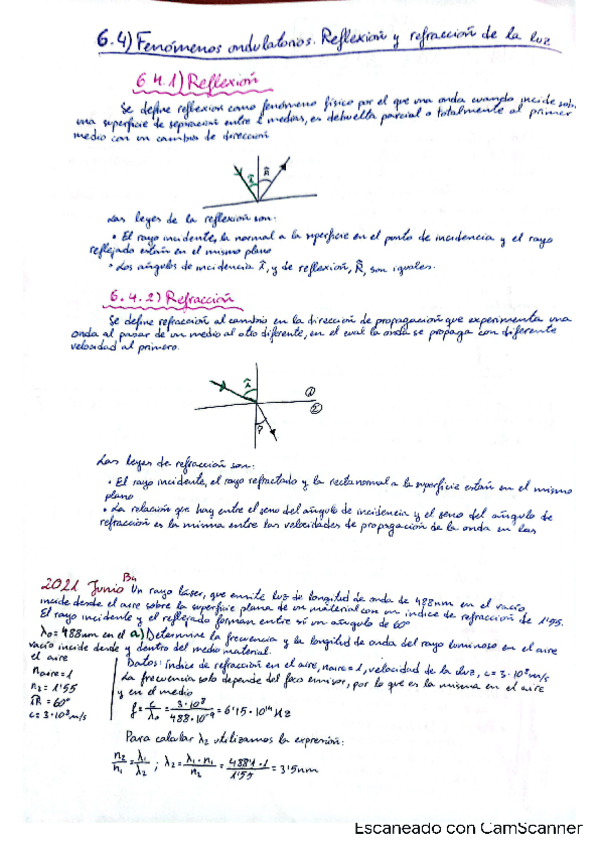 6.4) Fenómenos ondulatorios. Reflexión y refracción de la luz
6.4.1) Reflexión
Se define reflexión como fenómeno físico por el que una onda cuando incide sob.
una superficie de separación entre 2 medios, es debuelta parcial o totalmente al primer
medio con un cambio de dirección
î R̂
Las leyes de la reflexión son:
• El rayo incidente, la normal a la superficie en el punto de incidencia y el rayo
reflejado están en el mismo plano
• Los ángulos de incidencia î, y de reflexión, R̂, son iguales.
6.4.2) Refracción
Se define refracción al cambio en la dirección de propagación que experimenta una
onda al pasar de un medio al otro diferente, en el cual la onda se propaga con diferente
velocidad al primero.
î
①
②
r̂
Las leyes de refracción son:
• El rayo incidente, el rayo refractado y la recta normal a la superficie están en el mismo
plano
• La relación que hay entre el seno del ángulo de incidencia y el seno del ángulo de
refracción es la misma entre las velocidades de propagación de la onda en las
2021 Junio B4 Un rayo láser, que emite luz de longitud de onda de 488nm en el vacío,
incide desde el aire sobre la superficie plana de un material con un índice de refracción de 1'55.
El rayo incidente y el reflejado forman entre sí un ángulo de 60º
λ₀ = 488nm en el a) Determine la frecuencia y la longitud de onda del rayo luminoso en el aire
vacío incide desde y dentro del medio material.
el aire
n aire = 1
n₂ = 1'55
îR = 60º
c = 3·10⁸ m/s
Datos: índice de refracción en el aire, naire = 1, velocidad de la luz, c = 3·10⁸ m/s
La frecuencia solo depende del foco emisor, por lo que es la misma en el aire
y en el medio
f = c/λ₀ = 3·10⁸/488·10⁻⁹ = 6'15·10¹⁴ Hz
Para calcular λ₂ utilizamos la expresión:
n₂/n₁ = λ₁/λ₂ ; λ₂ = λ₁·n₁/n₂ = 488·1/1'55 = 3'5nm
Escaneado con CamScanner